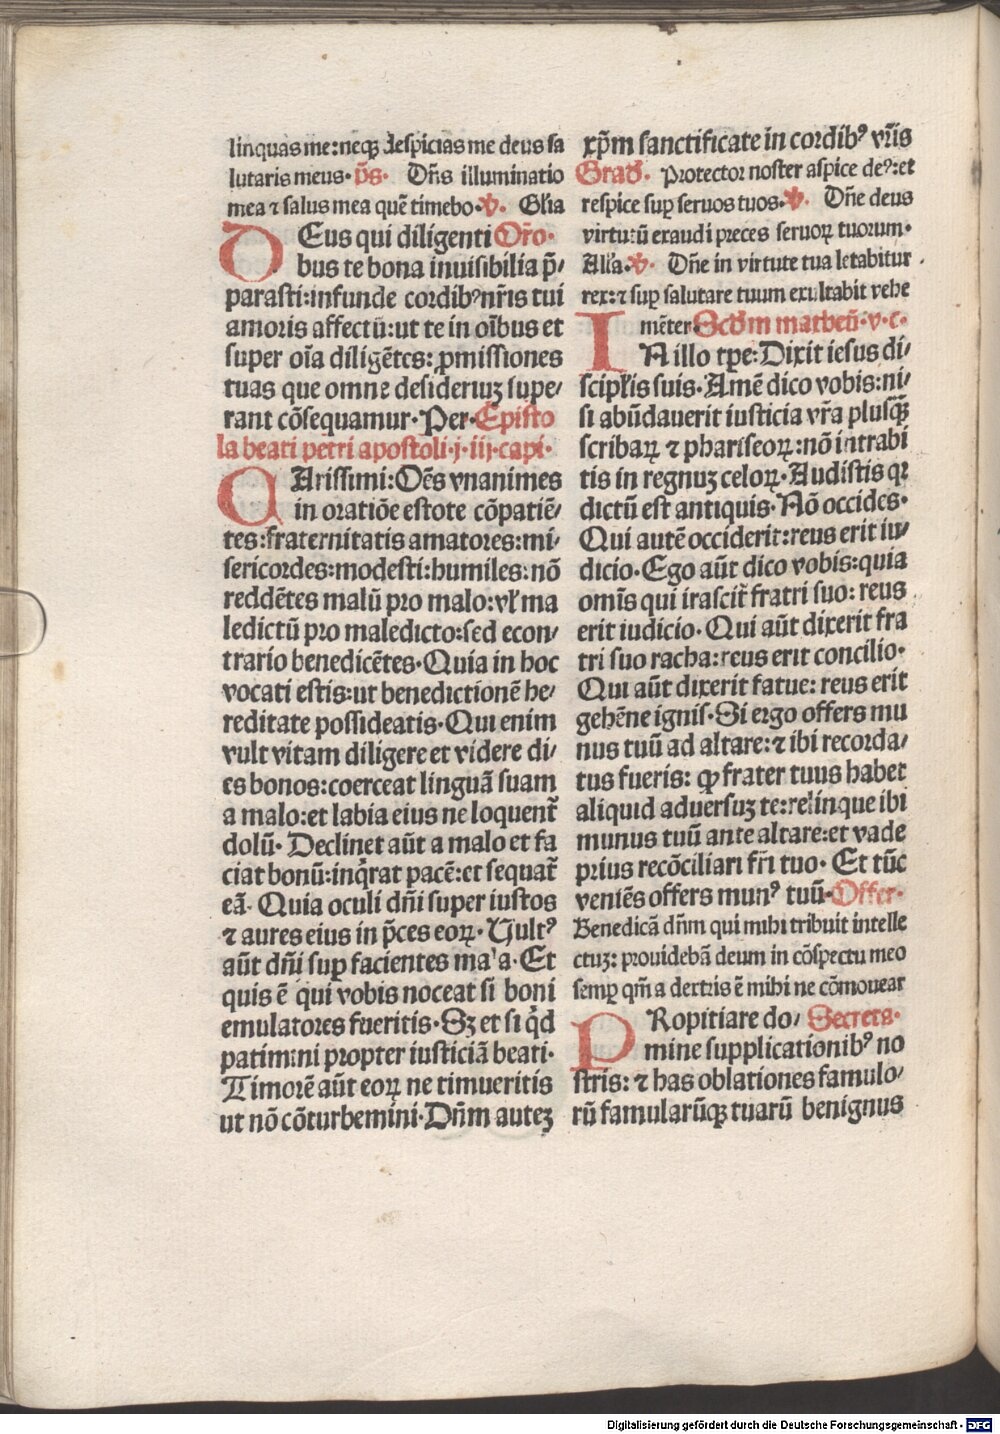 linquas me: neqꝫ despicias me deus sa
lutaris meus· p̄s· Dn̄s illuminatio
mea ⁊ salus mea quē timebo·℣· Gl̄ia
DEus qui diligenti Oŕo·
bus te bona inuisibilia p̄/
parasti: infunde cordibꝰ nr̄is tui
amoris affectū: ut te in oībus et
super oīa diligētes: ꝓmissiones
tuas que omne desideriuꝫ supe/
rant cōsequamur· Per· Episto
la beati petri apostoli·j·iij·capi·
CArissimi: Oēs vnanimes
in oratiōe estote cōpatiē/
tes: fraternitatis amatores: mi/
sericordes: modesti: humiles: nō
reddētes malū pro malo: vł ma
ledictū pro maledicto: sed econ/
trario benedicētes· Quia in hoc
vocati estis: ut benedictionē he/
reditate possideatis· Qui enim
vult vitam diligere et videre di/
es bonos: coerceat linguā suam
a malo: et labia eius ne loquent̄
dolū· Declinet aūt a malo et fa
ciat bonū: inq̄rat pacē: et sequat̄
eā· Quia oculi dn̄i super iustos
⁊ aures eius in p̄ces eoꝝ· Uultꝰ
aūt dn̄i suꝑ facientes mala· Et
quis ē qui vobis noceat si boni
emulatores fueritis· Sꝫ et si q̄d
patimini propter iusticiā beati·
Timorē aūt eoꝝ ne timueritis
ut nō cōturbemini· Dn̄m auteꝫ
xp̄m sanctificate in cordibꝰ vr̄is
Grad̄· Protector noster aspice deꝰ: et
respice suꝑ seruos tuos·℣· Dn̄e deus
virtutū exaudi preces seruoꝝ tuorum·
Alīa·℣· Dn̄e in virtute tua letabitur
rex: ⁊ suꝑ salutare tuum exultabit vehe
mēter· Scd̄m matheū·v·c·
IN illo tꝑe: Dixit iesus di/
scipłis suis· Amē dico vobis: ni/
si abūdauerit iusticia vr̄a plusqꝫ̄
scribaꝝ ⁊ phariseoꝝ: nō intrabi
tis in regnuꝫ celoꝝ· Audistis qꝛ
dictū est antiquis· Nō occides·
Qui autē occiderit: reus erit iu/
dicio· Ego aūt dico vobis: quia
omīs qui irascit̄ fratri suo: reus
erit iudicio· Qui aūt dixerit fra
tri suo racha: reus erit concilio·
Qui aūt dixerit fatue: reus erit
gehēne ignis· Si ergo offers mu
nus tuū ad altare: ⁊ ibi recorda/
tus fueris: ꝙ frater tuus habet
aliquid aduersuꝫ te: relinque ibi
munus tuū ante altare: et vade
prius recōciliari fr̄i tuo· Et tūc
veniēs offers munꝰ tuū· Offer·
Benedicā dn̄m qui mihi tribuit intelle
ctuꝫ: prouidebā deum in cōspectu meo
semꝑ qm̄ a dextris ē mihi ne cōmouear
PRopitiare do/ Secreta·
mine supplicationibꝰ no
stris: ⁊ has oblationes famulo/
rū famularūqꝫ tuarū benignus
Digitalisierung gefördert durch die Deutsche Forschungsgemeinschaft - DFG